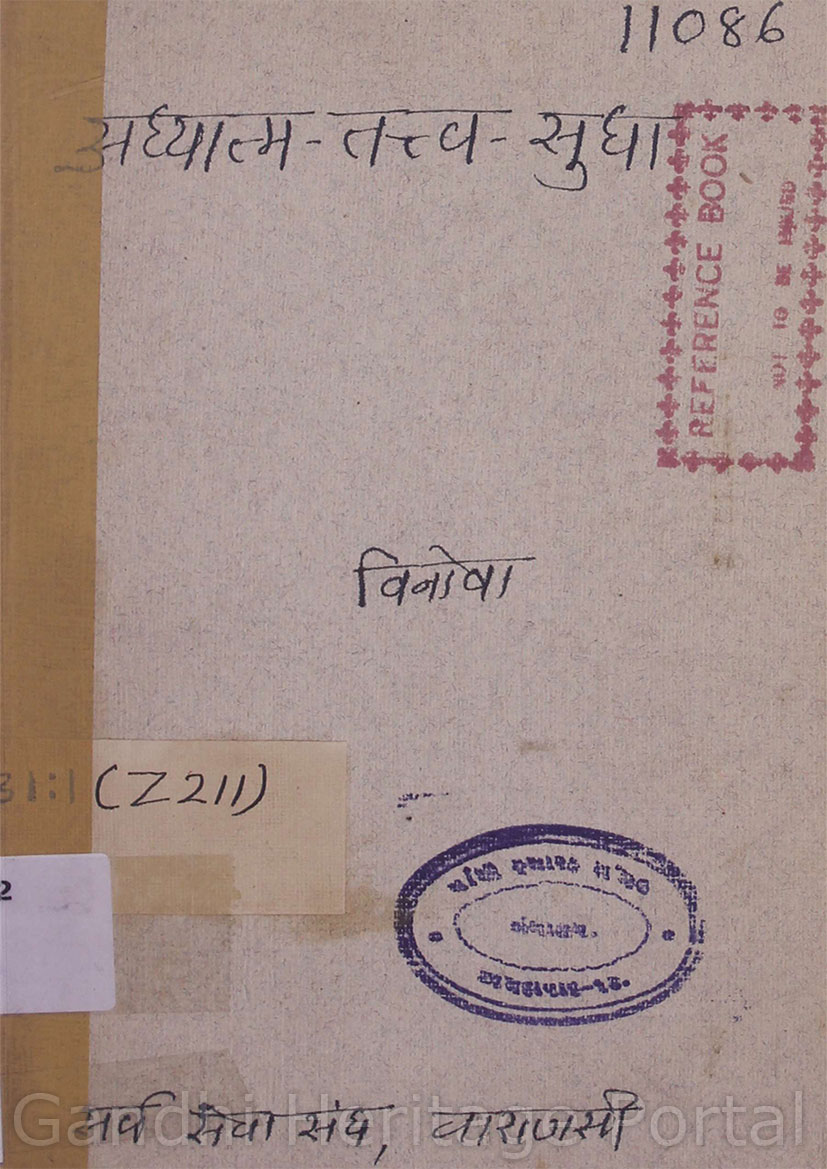 11086
अध्यात्म - तत्त्व - सुधा
REFERENCE BOOK
NOT TO BE ISSUED
विनोबा
31:1 (Z211)
2
सर्व सेवा संघ, वाराणसी
Gandhi Heritage Portal